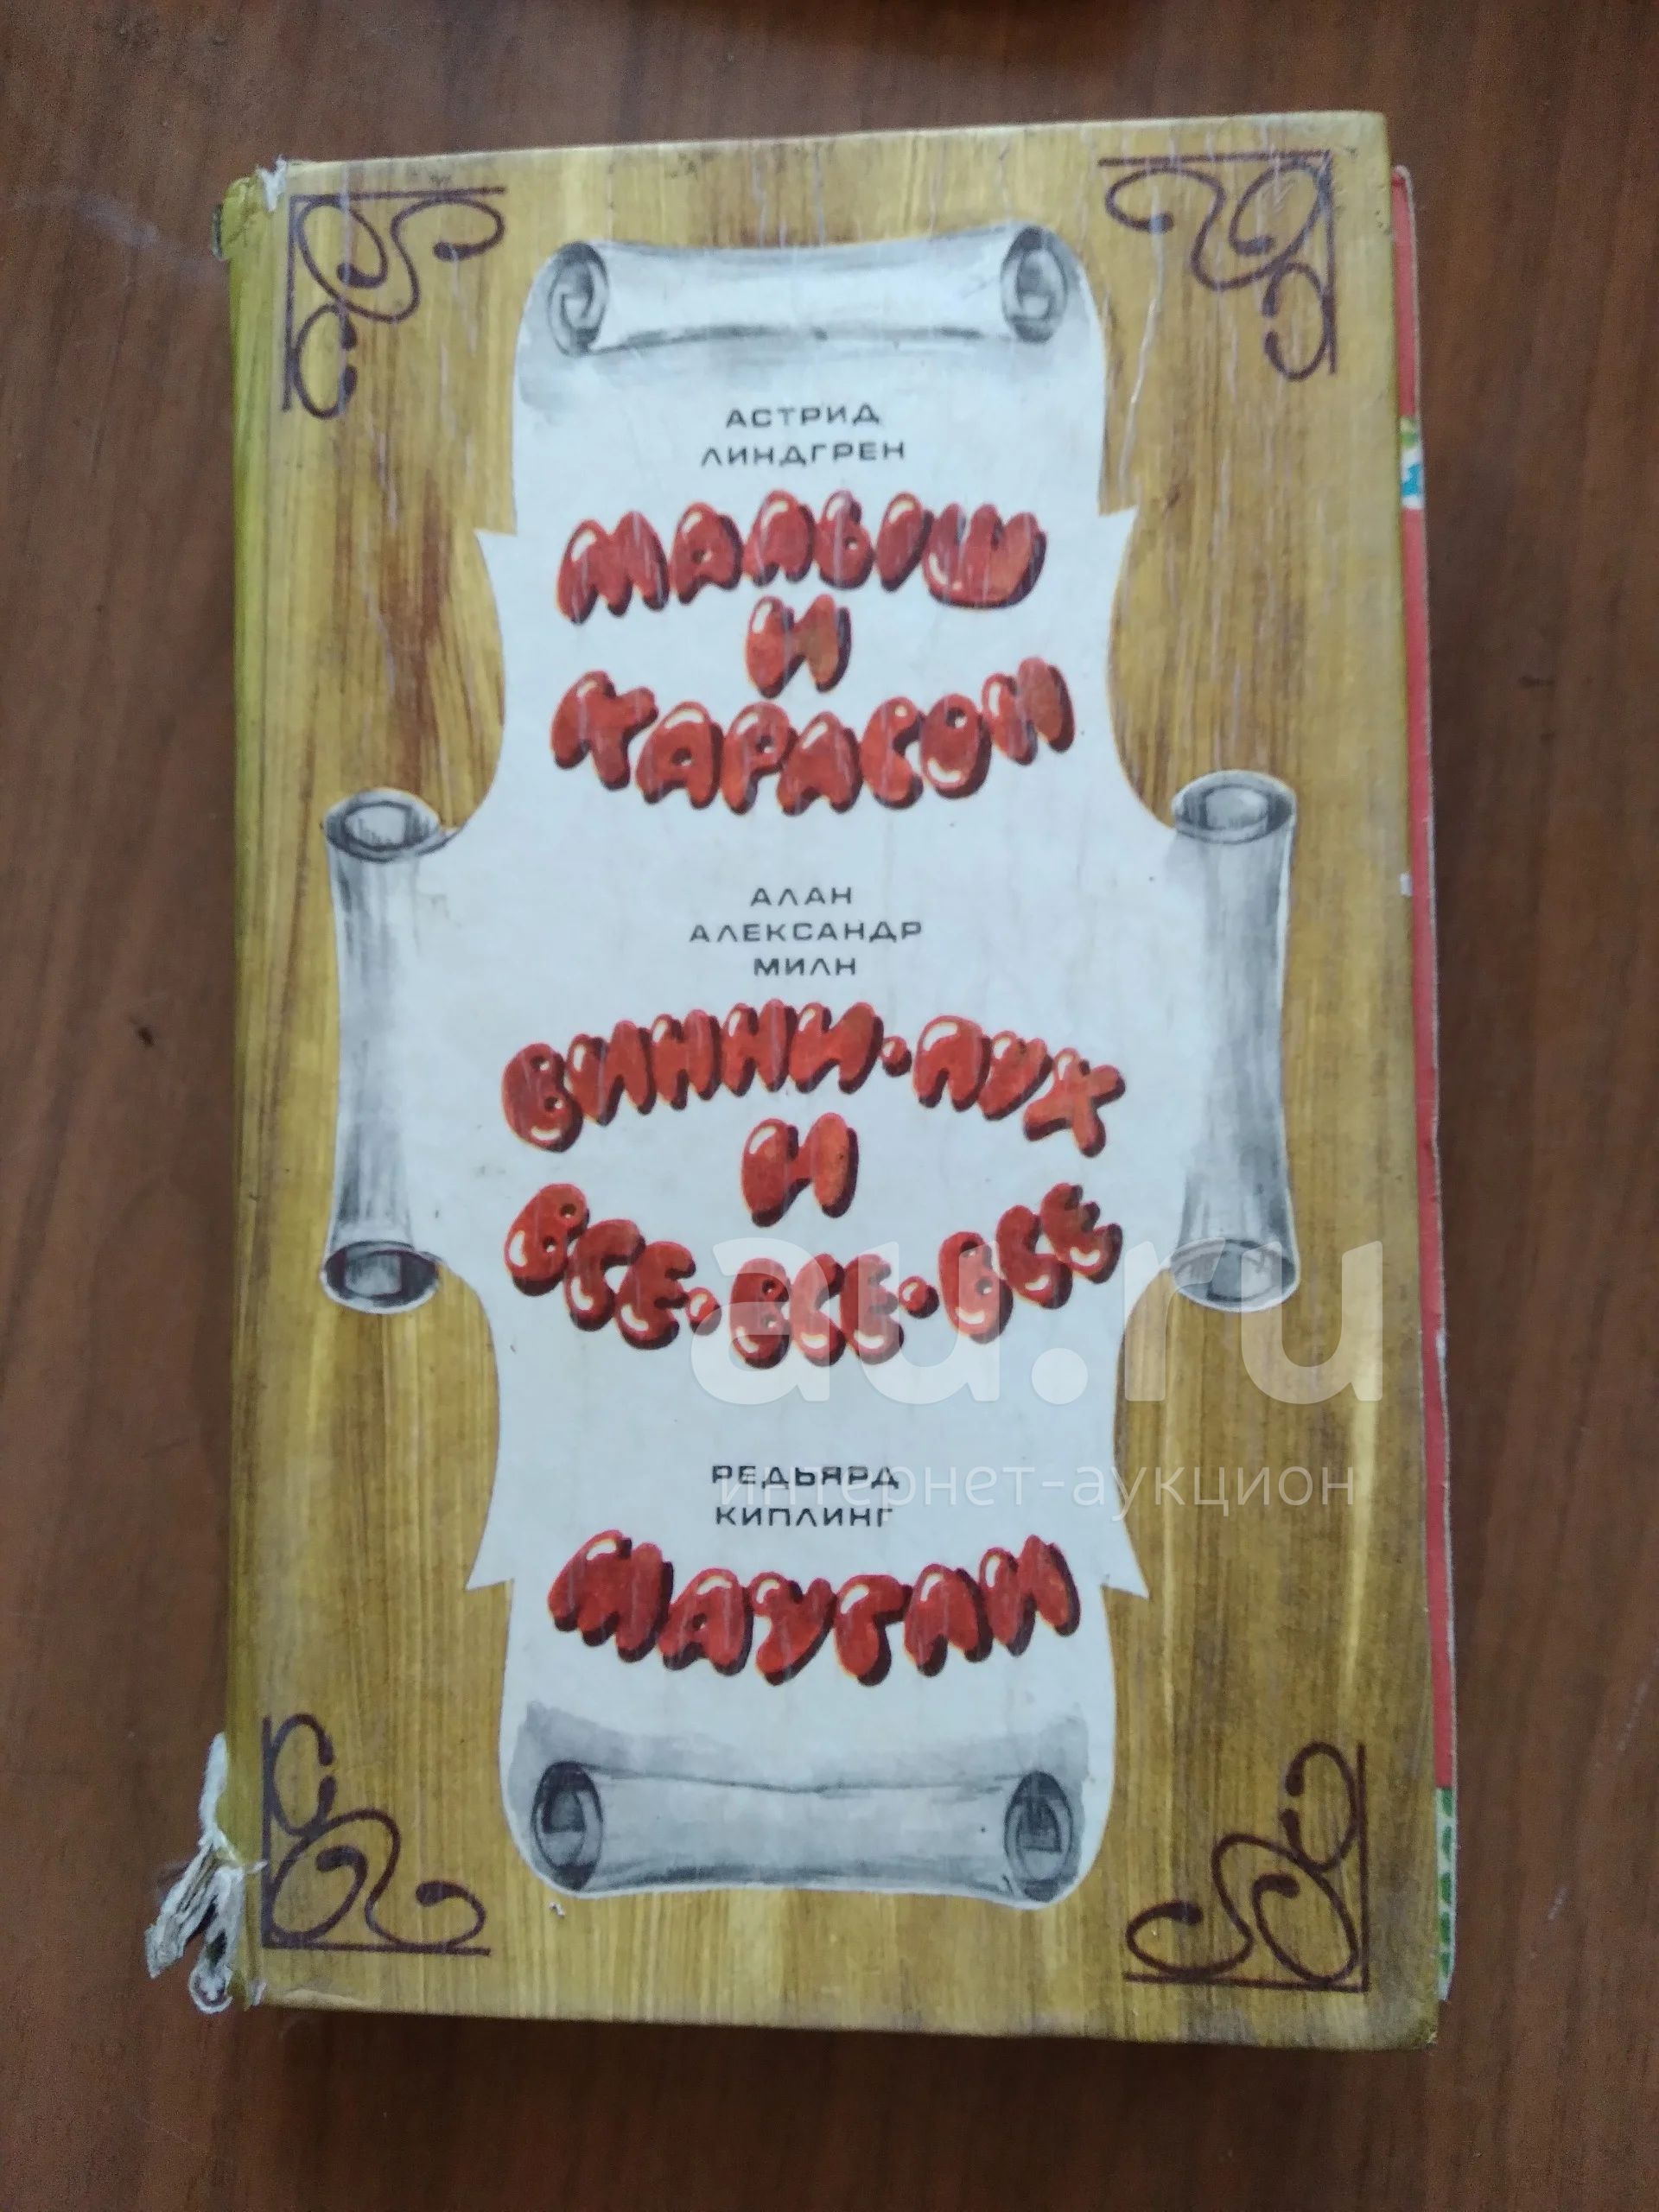 АСТРИД
ЛИНДГРЕН
МАЛЫШ
И
КАРЛСОН
АЛАН
АЛЕКСАНДР
МИЛН
ВИННИ-ПУХ
И
ВСЕ-ВСЕ-ВСЕ
au.ru
РЕДЬЯРД
интернет-аукцион
КИПЛИНГ
МАУГЛИ